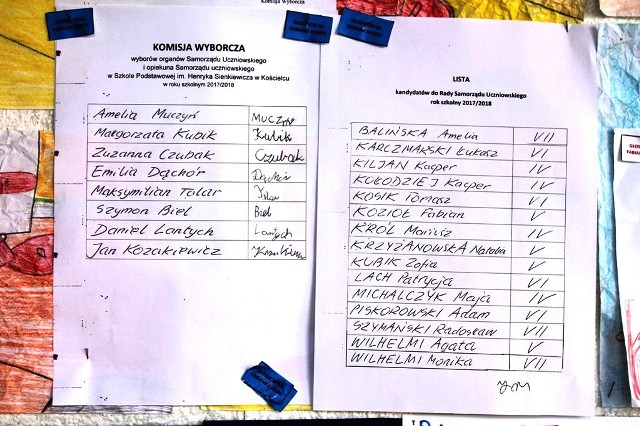 Komisja Wyborcza
KOMISJA WYBORCZA
wyborów organów Samorządu Uczniowskiego
i opiekuna Samorządu uczniowskiego
w Szkole Podstawowej im. Henryka Sienkiewicza w Kościelcu
w roku szkolnym 2017/2018
Amelia Muczyń MUCZYŃ
Małgorzata Kubik Kubik
Zuzanna Czubak Czubak
Emilia Dąchór Dąchór
Maksymilian Talar
Szymon Biel Biel
Daniel Lantych Lantych
Jan Kozakiewicz
LISTA
kandydatów do Rady Samorządu Uczniowskiego
rok szkolny 2017/2018
BALIŃSKA Amelia VII
KARCZMARSKI Łukasz VI
KILJAN Kacper IV
KOŁODZIEJ Kacper IV
KOSIK Tomasz VI
KOZIOŁ Fabian V
KRÓL Mariusz IV
KRZYŻANOWSKA Natalia V
KUBIK Zofia V
LACH Patrycja VI
MICHALCZYK Maja IV
PISKOROWSKI Adam VI
SZYMAŃSKI Radosław VII
WILHELMI Agata V
WILHELMI Monika VII